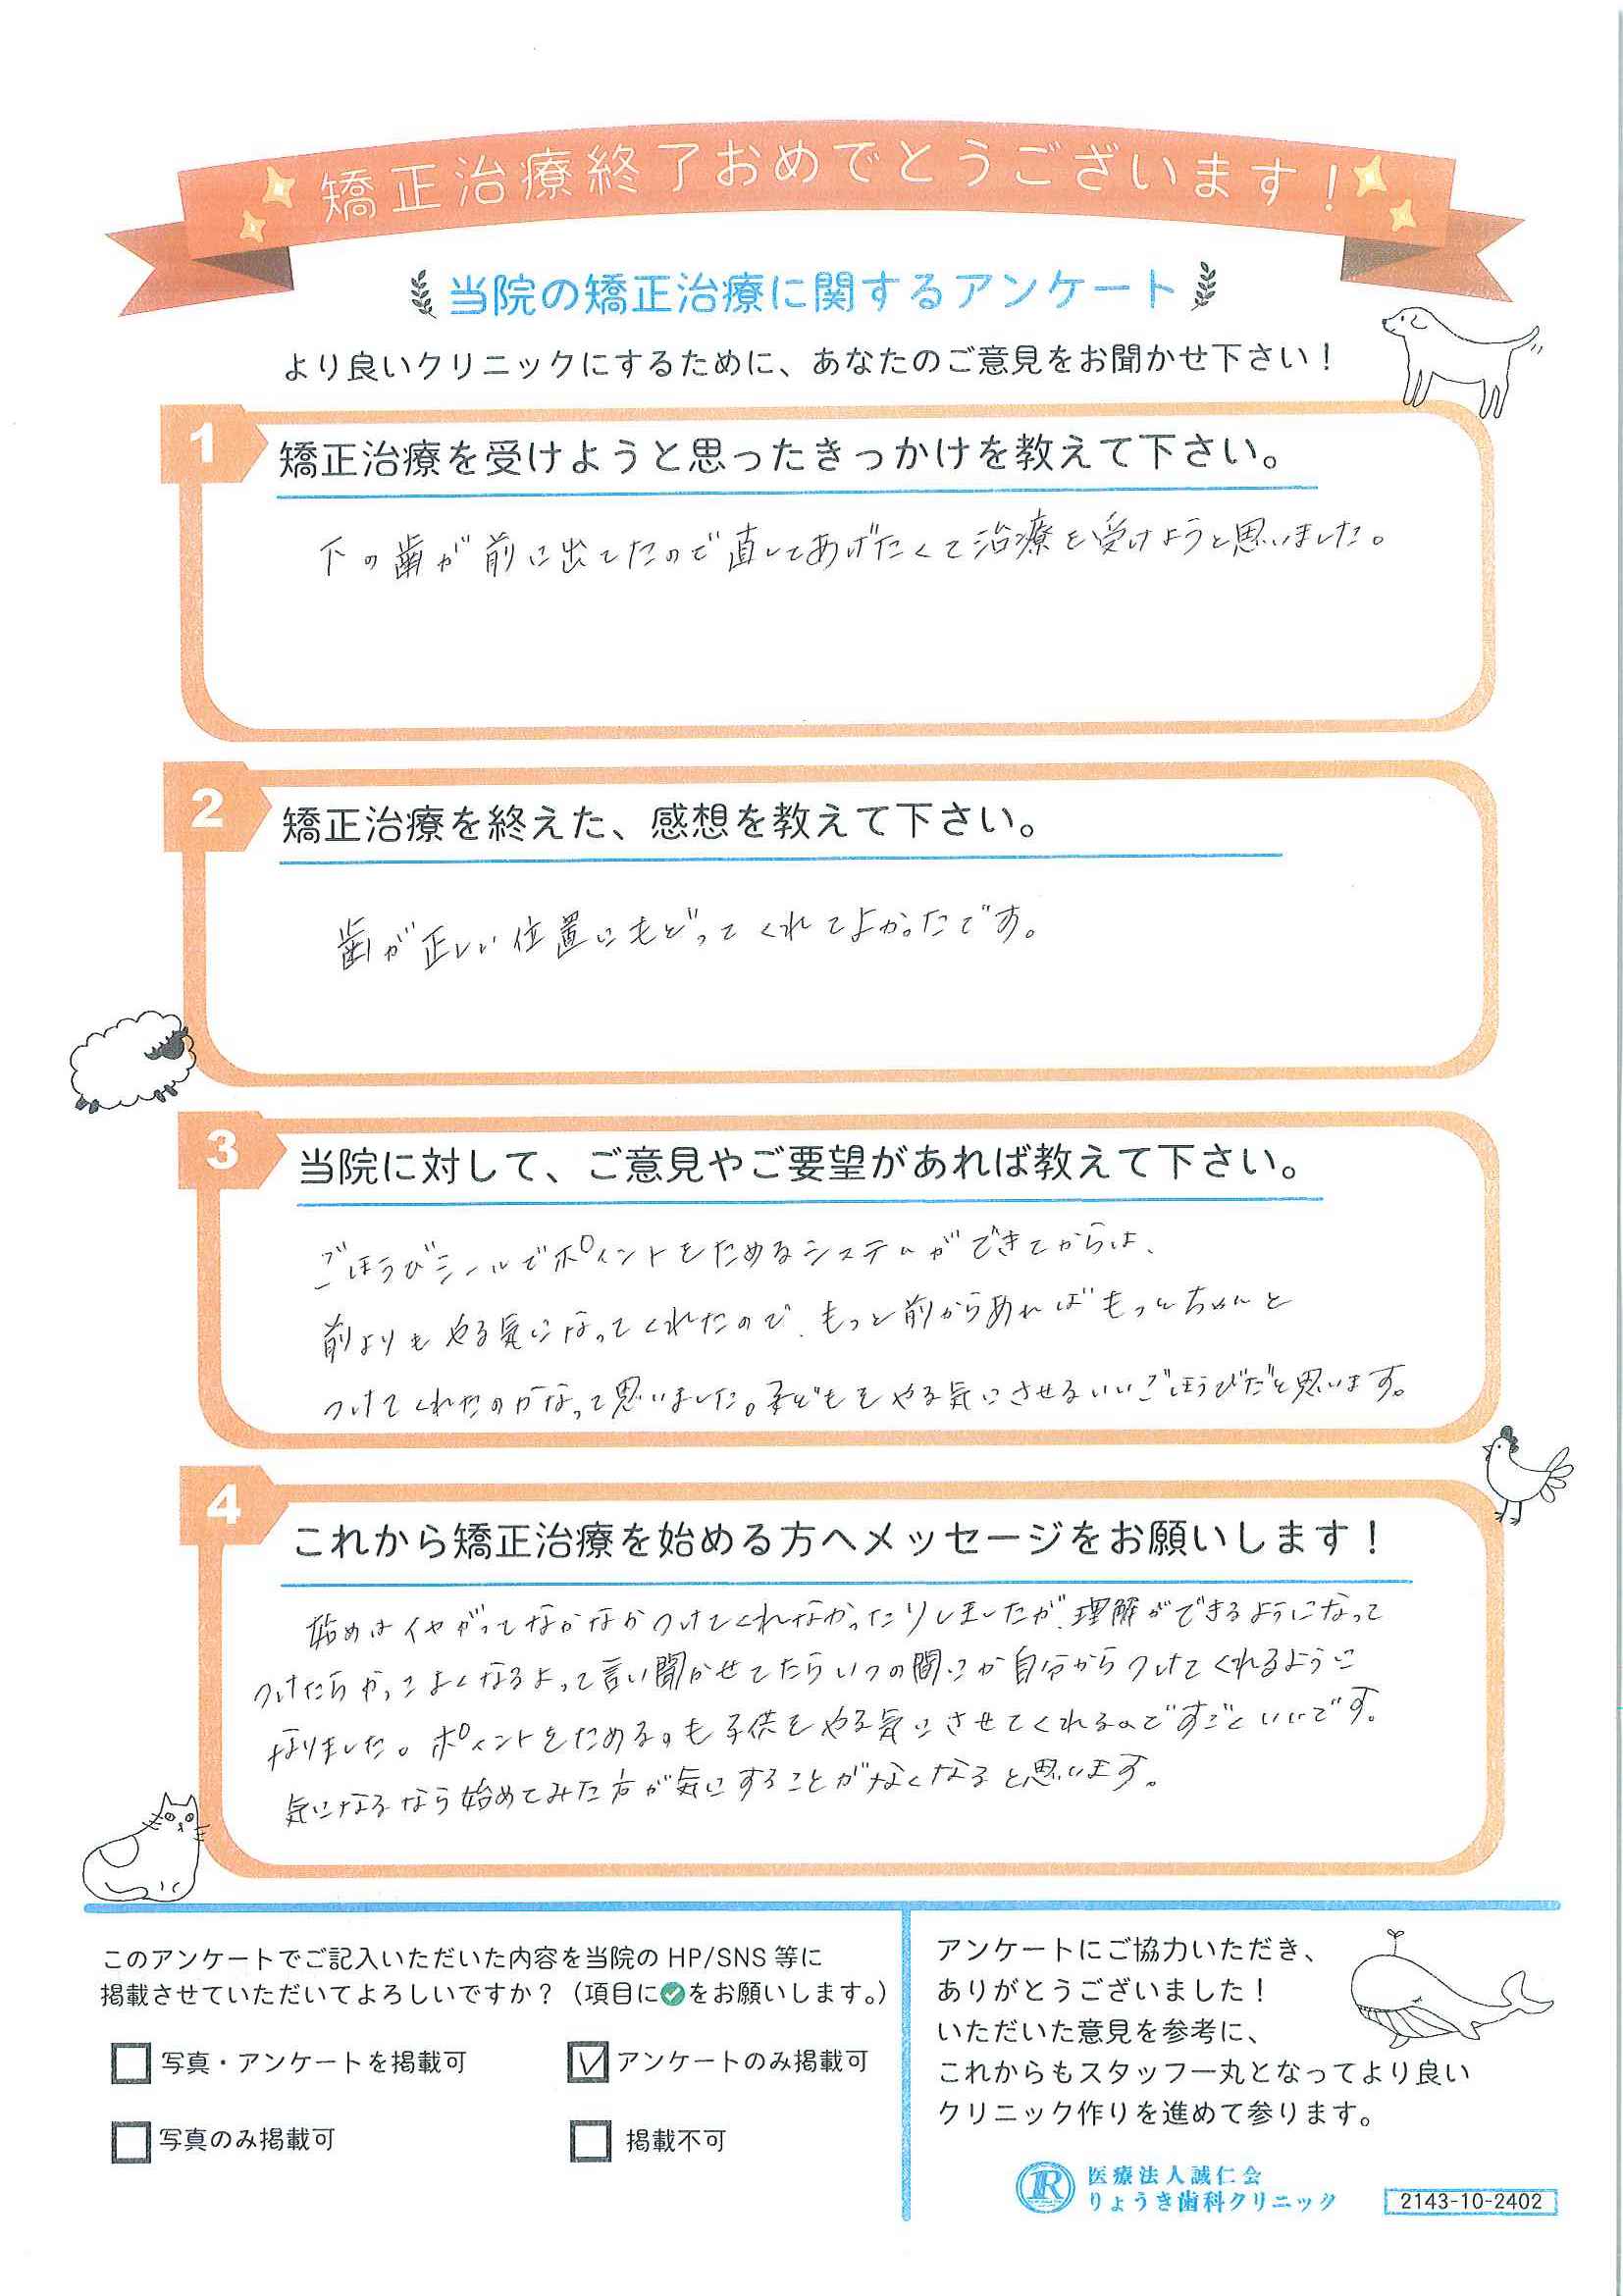 矯正治療終了おめでとうございます！
当院の矯正治療に関するアンケート
より良いクリニックにするために、あなたのご意見をお聞かせ下さい！
1
矯正治療を受けようと思ったきっかけを教えて下さい。
下の歯が前に出てたので直してあげたくて治療を受けようと思いました。
2
矯正治療を終えた、感想を教えて下さい。
歯が正しい位置にもどってくれてよかったです。
3
当院に対して、ご意見やご要望があれば教えて下さい。
ごほうびシールでポイントをためるシステムができてからは、
前よりもやる気になってくれたので、もっと前からあればもっとちゃんと
つけてくれたのかなって思いました。子どもをやる気にさせるいいごほうびだと思います。
4
これから矯正治療を始める方へメッセージをお願いします！
始めはイヤがってなかなかつけてくれなかったりしましたが、理解ができるようになって
つけたらかっこよくなるよって言い聞かせてたらいつの間にか自分からつけてくれるように
なりました。ポイントをためるのも子供をやる気にさせてくれるのですごくいいです。
気になるなら始めてみた方が気にすることがなくなると思います。
このアンケートでご記入いただいた内容を当院の HP/SNS 等に
掲載させていただいてよろしいですか？（項目に✓をお願いします。）
写真・アンケートを掲載可
アンケートのみ掲載可
写真のみ掲載可
掲載不可
アンケートにご協力いただき、
ありがとうございました！
いただいた意見を参考に、
これからもスタッフ一丸となってより良い
クリニック作りを進めて参ります。
医療法人誠仁会
りょうき歯科クリニック
2143-10-2402